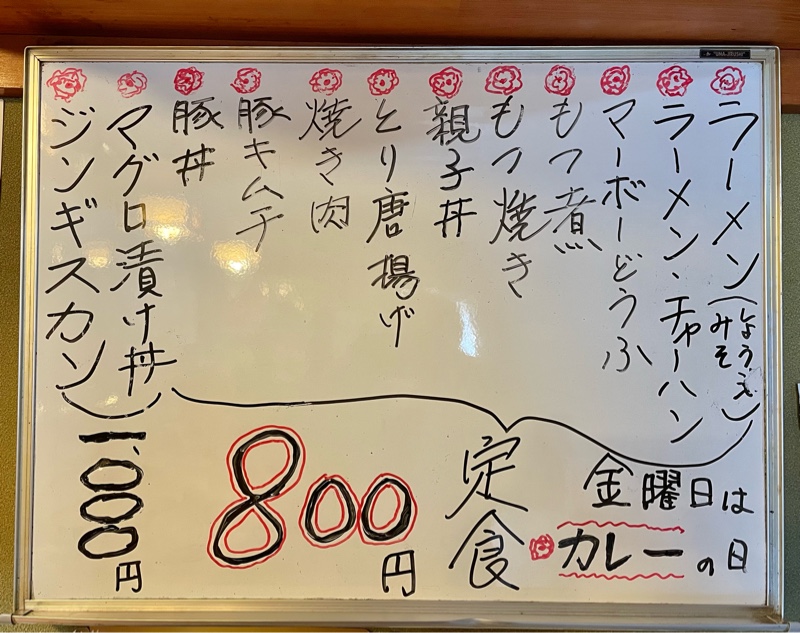 ラーメン(しょうゆ みそ)
ラーメン・チャーハン
マーボーどうふ
もつ煮
もつ焼き
親子丼
とり唐揚げ
焼き肉
豚キムチ
豚丼
マグロ漬け丼
ジンギスカン
金曜日は
カレーの日
定食
800円
1,000円